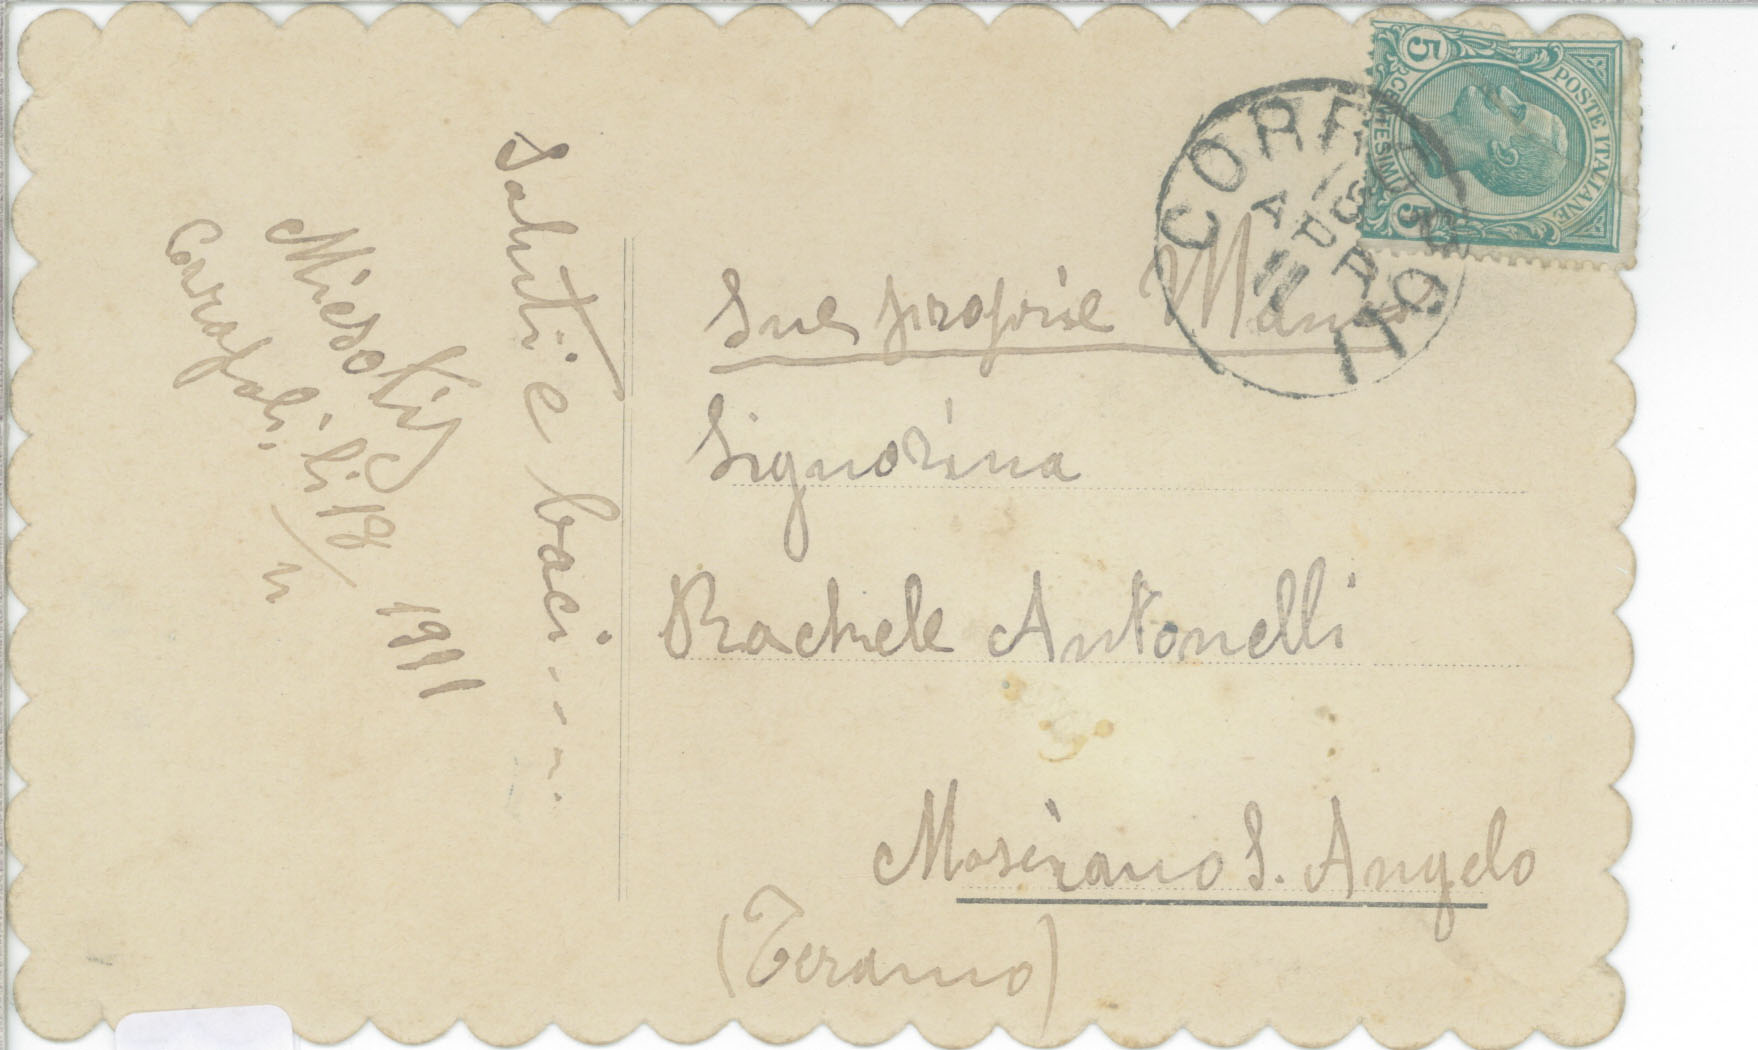 Saluti e baci
Corropoli, li 18/4
1911
Sue proprie Mani
Signorina
Rachele Antonelli
Mosciano S. Angelo
(Teramo)
POSTE ITALIANE
5 CENTESIMI 5
CORR
APR
11